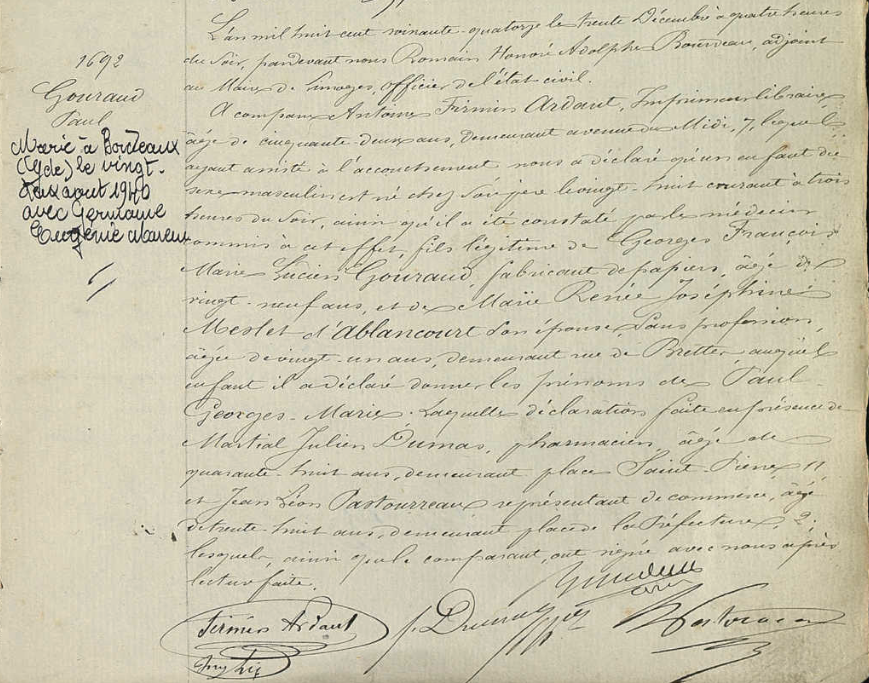 1692
Gouraud
Paul
Marié à Bordeaux
(Gde) le vingt-
deux aout 1940
avec Germaine
Eugénie
L'an mil huit cent soixante-quatorze le trente Décembre à quatre heures
du Soir, pardevant nous Romain Honoré Adolphe Bourdeau, adjoint
au Maire de Limoges, officier de l'état civil.
A comparu Antoine Firmin Ardant, Imprimeur libraire,
âgé de cinquante-deux ans, demeurant avenue du Midi, 7, lequel
ayant assisté à l'accouchement nous a déclaré qu'un enfant du
sexe masculin est né chez Son père le vingt-huit courant à trois
heures du Soir, ainsi qu'il a été constaté par le médecin
commis à cet effet, fils légitime de Georges François
Marie Lucien Gouraud, fabricant de papiers, âgé de
vingt-neuf ans, et de Marie Renée Joséphine
Meslet d'Ablancourt Son épouse, Sans profession
âgée de vingt-un ans, demeurant rue de auquel
enfant il a déclaré donner les prénoms de Paul
Georges-Marie. Laquelle déclaration faite en présence de
Martial Julien Dumas, pharmacien, âgé de
quarante-huit ans, demeurant place Saint-Pierre 11
et Jean Léon Pastourreau représentant de commerce, âgé
de trente huit ans, demeurant place de la Préfecture, 2;
lesquels, ainsi que le comparant, ont signé avec nous après
lecture faite.
Firmin Ardant
J. Dumas